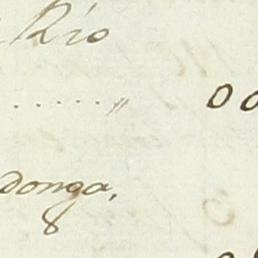 Río
........ „ 00
Donga,
8